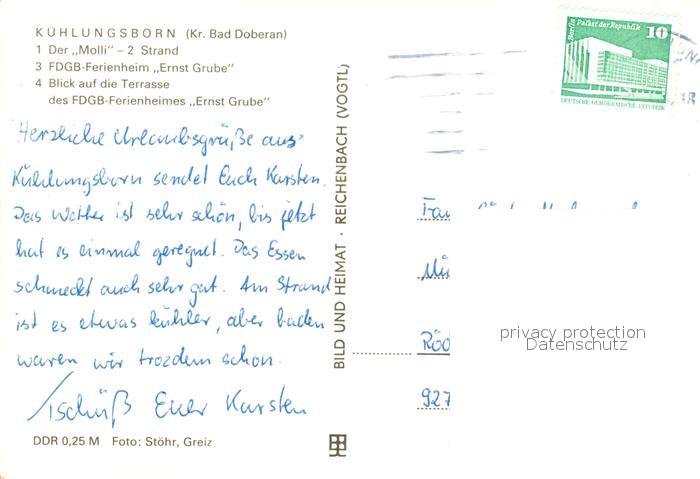 KÜHLUNGSBORN (Kr. Bad Doberan)
1 Der „Molli" – 2 Strand
3 FDGB-Ferienheim „Ernst Grube"
4 Blick auf die Terrasse
des FDGB-Ferienheimes „Ernst Grube"
Herzliche Urlaubsgrüße aus
Kühlungsborn sendet Euch Karsten.
Das Wetter ist sehr schön, bis jetzt
hat es einmal geregnet. Das Essen
schmeckt auch sehr gut. Am Strand
ist es etwas kühler, aber baden
waren wir trozdem schon.
Tschüß Euer Karsten
DDR 0,25 M Foto: Stöhr, Greiz
BILD UND HEIMAT · REICHENBACH (VOGTL)
Berlin Palast der Republik
10
DEUTSCHE DEMOKRATISCHE REPUBLIK
Röd
927
privacy protection
Datenschutz